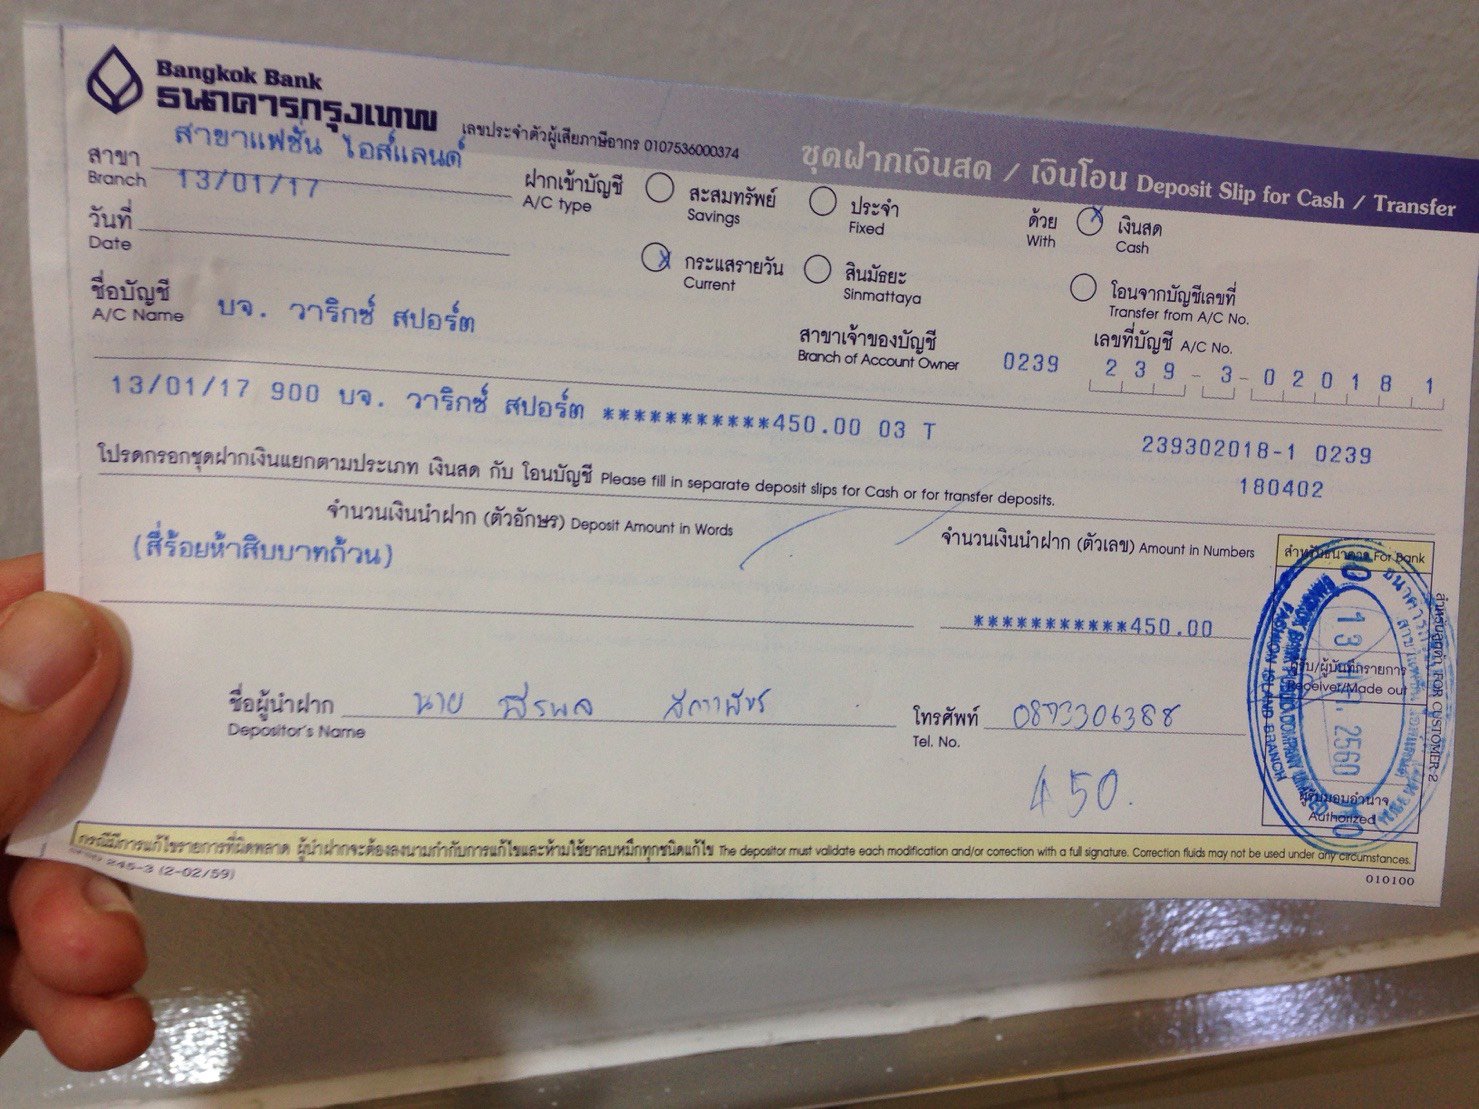 Bangkok Bank
ธนาคารกรุงเทพ
เลขประจำตัวผู้เสียภาษีอากร 0107536000374
ชุดฝากเงินสด / เงินโอน Deposit Slip for Cash / Transfer
สาขา Branch สาขาแฟชั่น ไอส์แลนด์
วันที่ Date 13/01/17
ฝากเข้าบัญชี A/C type
สะสมทรัพย์ Savings
ประจำ Fixed
กระแสรายวัน Current
สินมัธยะ Sinmattaya
ด้วย With
เงินสด Cash
โอนจากบัญชีเลขที่ Transfer from A/C No.
ชื่อบัญชี A/C Name บจ. วาริกซ์ สปอร์ต
สาขาเจ้าของบัญชี Branch of Account Owner 0239
เลขที่บัญชี A/C No. 239-3-02018 1
13/01/17 900 บจ. วาริกซ์ สปอร์ต ***********450.00 03 T
239302018-1 0239
180402
โปรดกรอกชุดฝากเงินแยกตามประเภท เงินสด กับ โอนบัญชี Please fill in separate deposit slips for Cash or for transfer deposits.
จำนวนเงินนำฝาก (ตัวอักษร) Deposit Amount in Words
(สี่ร้อยห้าสิบบาทถ้วน)
จำนวนเงินนำฝาก (ตัวเลข) Amount in Numbers
***********450.00
สำหรับธนาคาร For Bank
ผู้รับ/ผู้บันทึกรายการ
Receiver/Made out
ผู้รับมอบอำนาจ
Authorized
FOR CUSTOMER 2
13 2560
FASHION ISLAND BRANCH
ชื่อผู้นำฝาก Depositor's Name นาย พีรพล
โทรศัพท์ Tel. No. 0893306388
450.
กรณีมีการแก้ไขรายการที่ผิดพลาด ผู้นำฝากจะต้องลงนามกำกับการแก้ไขและห้ามใช้ยาลบหมึกทุกชนิดแก้ไข The depositor must validate each modification and/or correction with a full signature. Correction fluids may not be used under any circumstances.
245-3 (2-02/59)
010100